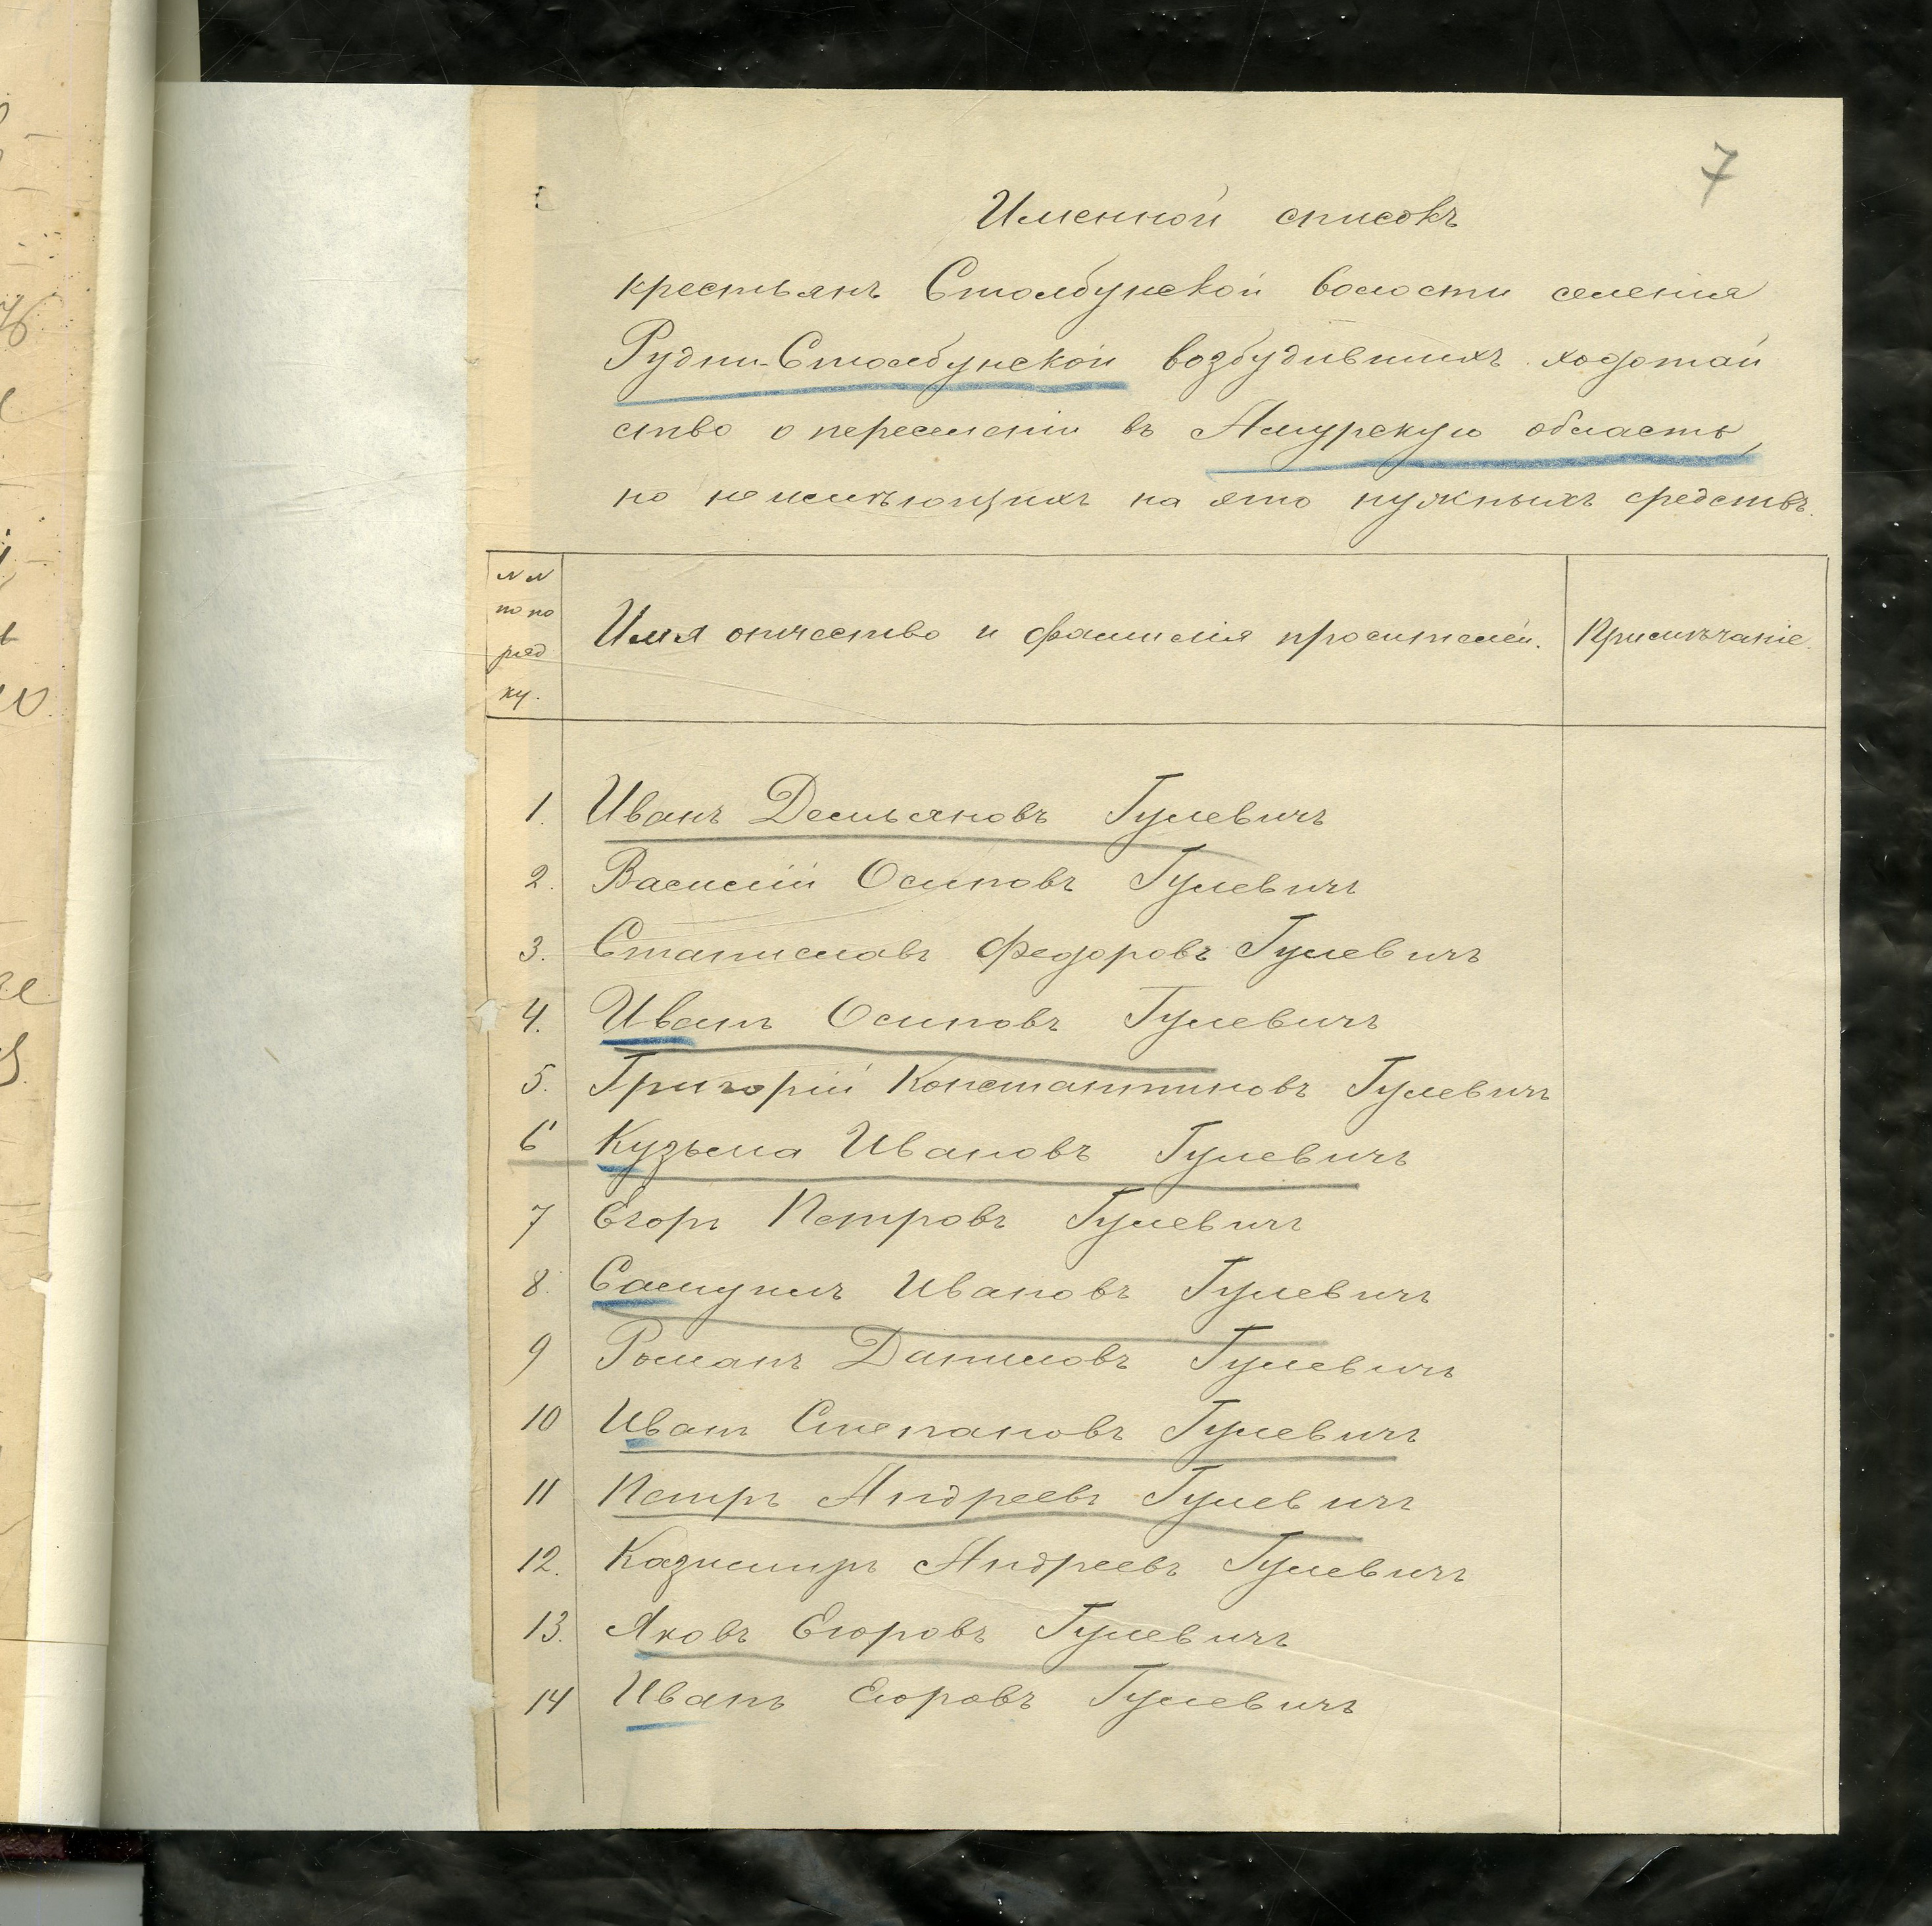 7
Именной списокъ
крестьянъ Столбунской волости селенія
Рудни-Столбунской возбудившихъ ходотай
ство о переселеніи въ Амурскую область,
но неимѣющихъ на это нужныхъ средствъ.
NN по по ряд ку.
Имя отчество и фамилія просителей.
Примѣчаніе.
1. Иванъ Демьяновъ Гулевичъ
2. Василій Осиповъ Гулевичъ
3. Станиславъ Федоровъ Гулевичъ
4. Иванъ Осиповъ Гулевичъ
5. Григорій Константиновъ Гулевичъ
6 Кузьма Ивановъ Гулевичъ
7 Егоръ Петровъ Гулевичъ
8. Ивановъ Гулевичъ
9 Романъ Даниловъ Гулевичъ
10 Иванъ Степановъ Гулевичъ
11 Петръ Андреевъ Гулевичъ
12. Казимиръ Андреевъ Гулевичъ
13. Яковъ Егоровъ Гулевичъ
14 Иванъ Егоровъ Гулевичъ